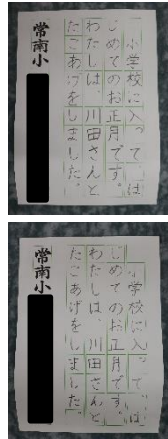 小学校に入って、は
じめてのお正月です。
わたしは、川田さんと
たこあげをしました。
常南小
小学校に入って、は
じめてのお正月です。
わたしは、川田さんと
たこあげをしました。
常南小